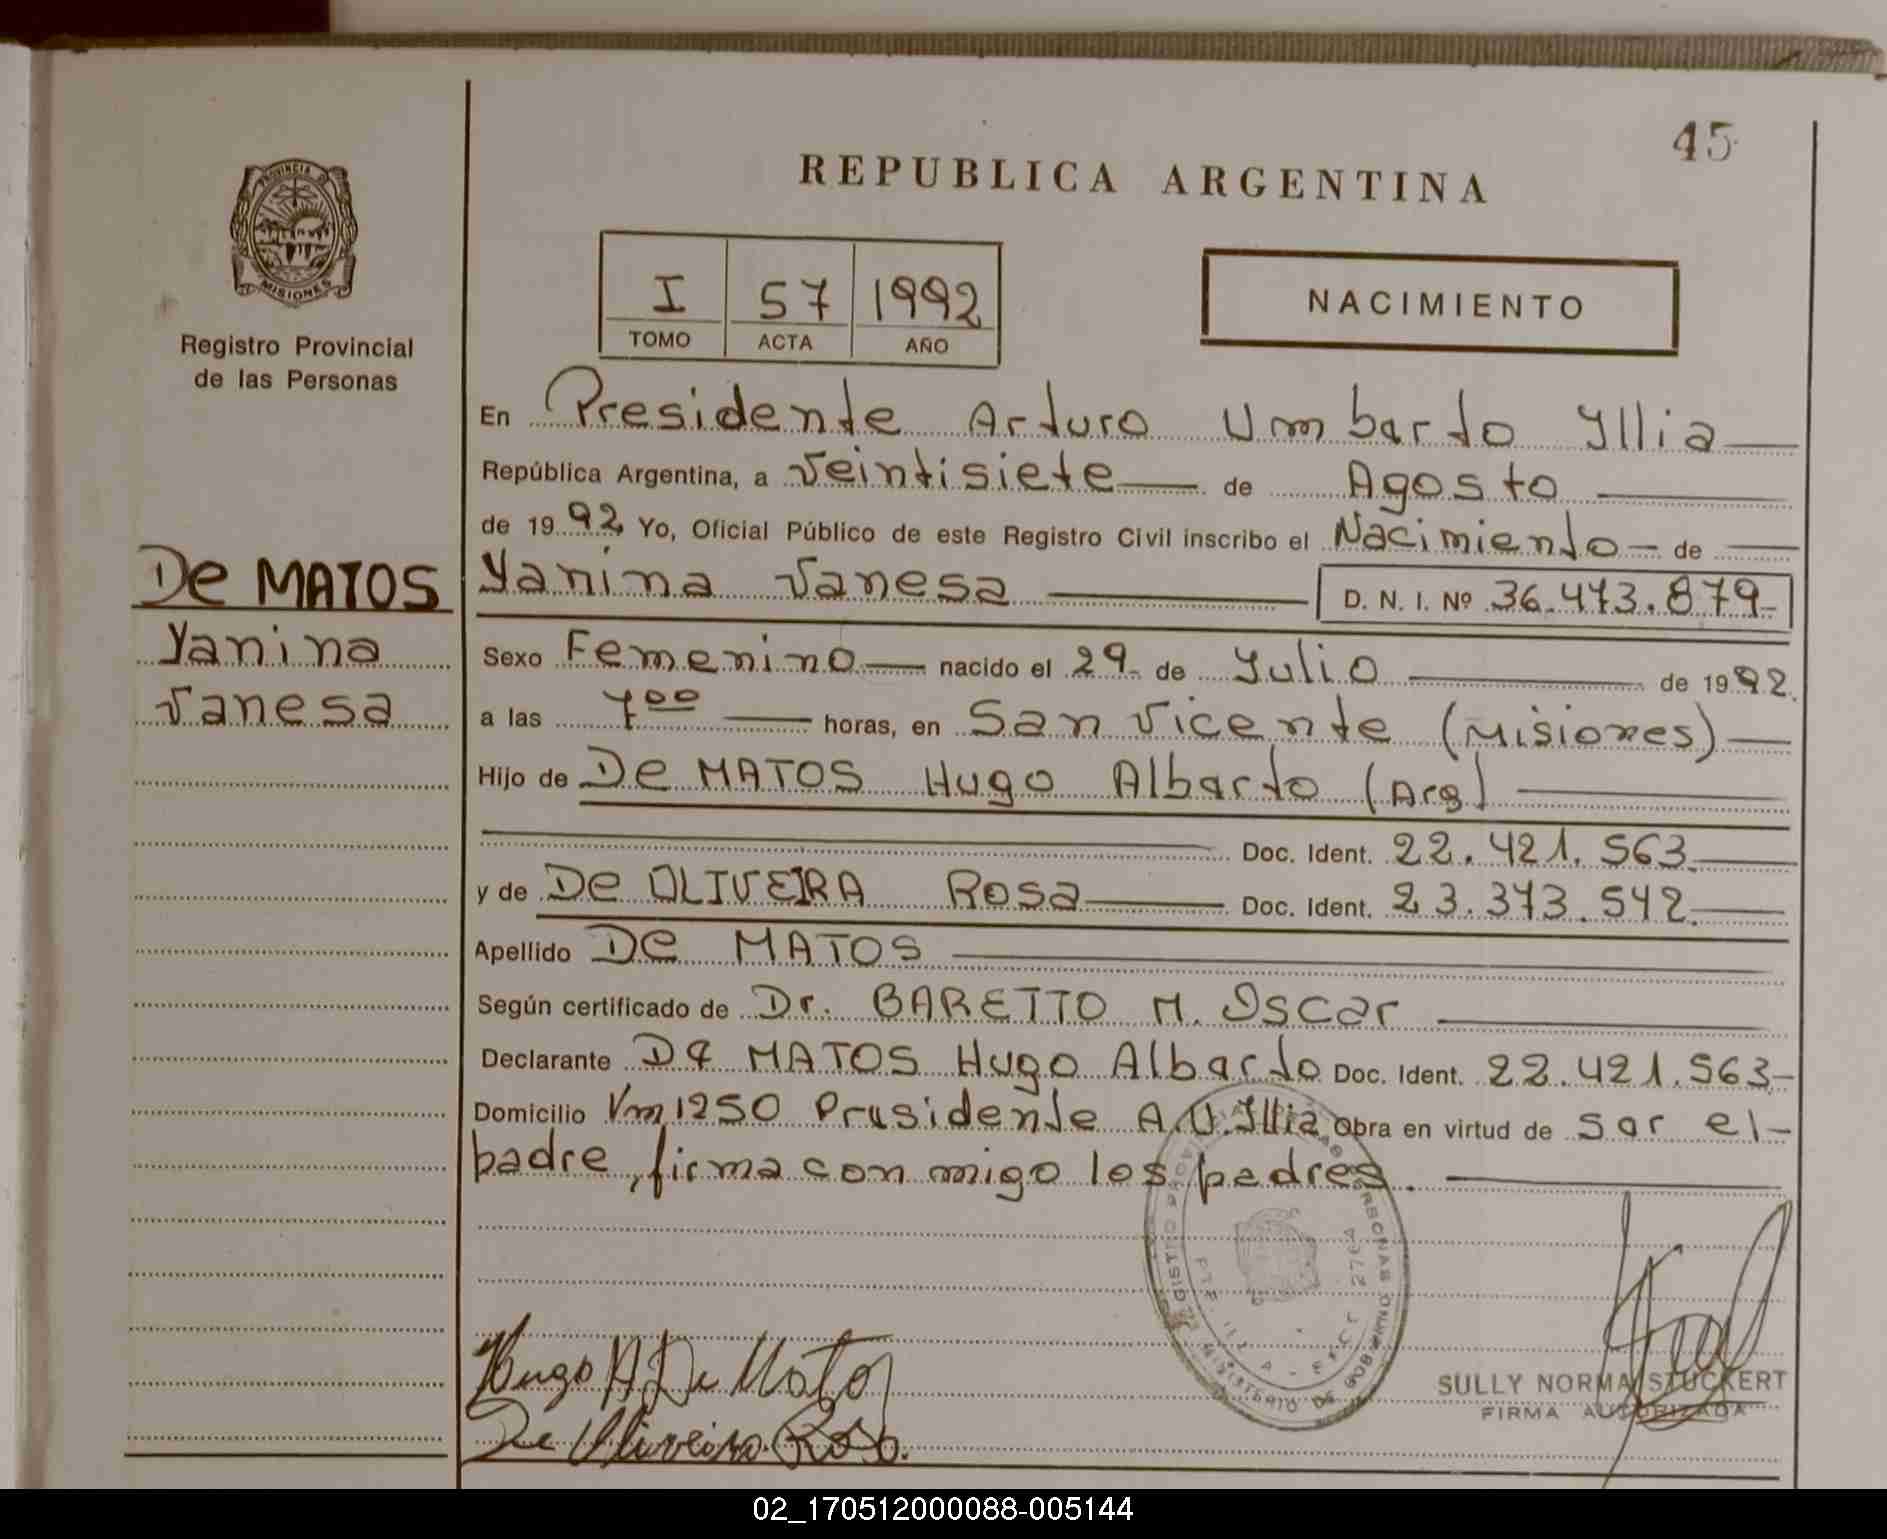 45
REPUBLICA ARGENTINA
PROVINCIA DE
MISIONES
Registro Provincial
de las Personas
I 57 1992
TOMO ACTA AÑO
NACIMIENTO
En Presidente Arturo Umbarto Yllia
República Argentina, a veintisiete de Agosto
de 1992 Yo, Oficial Público de este Registro Civil inscribo el Nacimiento de
De MATOS
Yanina
Vanesa
Yanina Vanesa D. N. I. Nº 36.473.879
Sexo Femenino nacido el 29 de Yulio de 1992.
a las 7⁰⁰ horas, en San Vicente (Misiones)
Hijo de De MATOS Hugo Albarto (Arg)
Doc. Ident. 22.421.563
y de De OLIVEIRA Rosa Doc. Ident. 23.373.542
Apellido De MATOS
Según certificado de Dr. BARETTO M. Oscar
Declarante De MATOS Hugo Albarto Doc. Ident. 22.421.563
Domicilio Km 1250 Presidente A.U.Yllia Obra en virtud de sar el
padre, firma con migo los padres.
Hugo A De Matos
De Oliveira Rosa.
SULLY NORMA STUCKERT
FIRMA AUTORIZADA
02_170512000088-005144